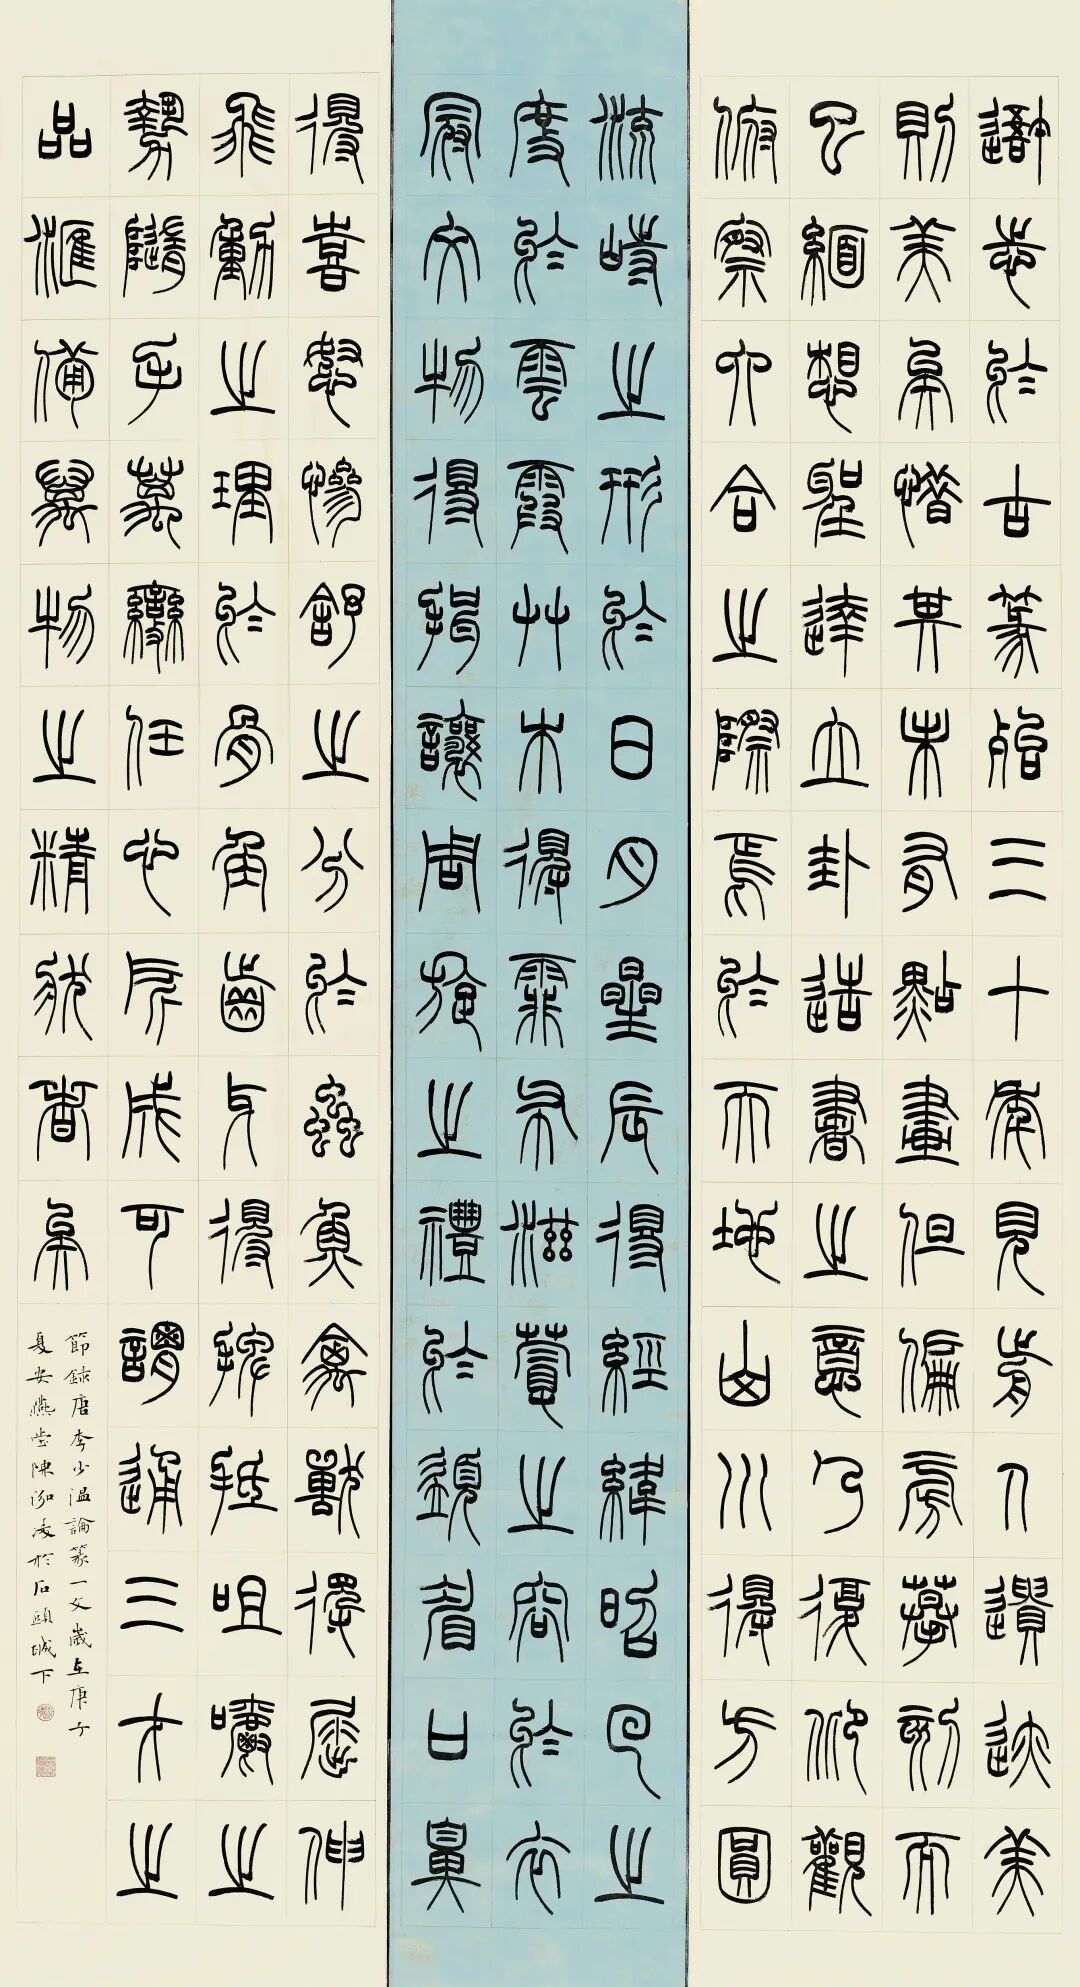 吾志於古篆殆三十年見前人遺跡美
則美矣惜其未有點畫但偏旁摹刻而
已緬想聖達立卦造書之意乃復仰觀
俯察六合之際焉於天地山川得方圓
流峙之形於日月星辰得經緯昭回之
度於雲霞艸木得霏布滋蔓之容於衣
冠文物得揖讓周旋之禮於須眉口鼻
得喜怒慘舒之分於蟲魚禽獸得屈伸
飛動之理於骨角齒牙得擺拉咀嚼之
勢隨手萬變任心所成可謂通三才之
品匯備萬物之精狀者矣
節録唐李少温論篆一文歲在庚子
夏安燕堂陳泓凌於石頭城下